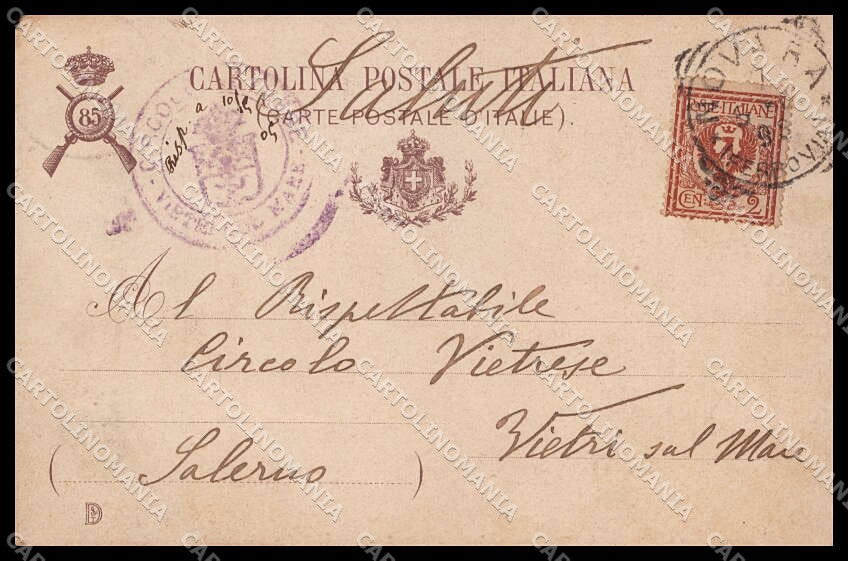 Saluti
CARTOLINA POSTALE ITALIANA
(CARTE POSTALE D'ITALIE).
85
Risp. a
CIRCOLO
VIETRI SUL MARE
POSTE ITALIANE
CENT. 2
PADOVA
FERROVIA
Al Rispettabile
Circolo Vietrese
Vietri sul Mare
(Salerno)
D
CARTOLINOMANIA